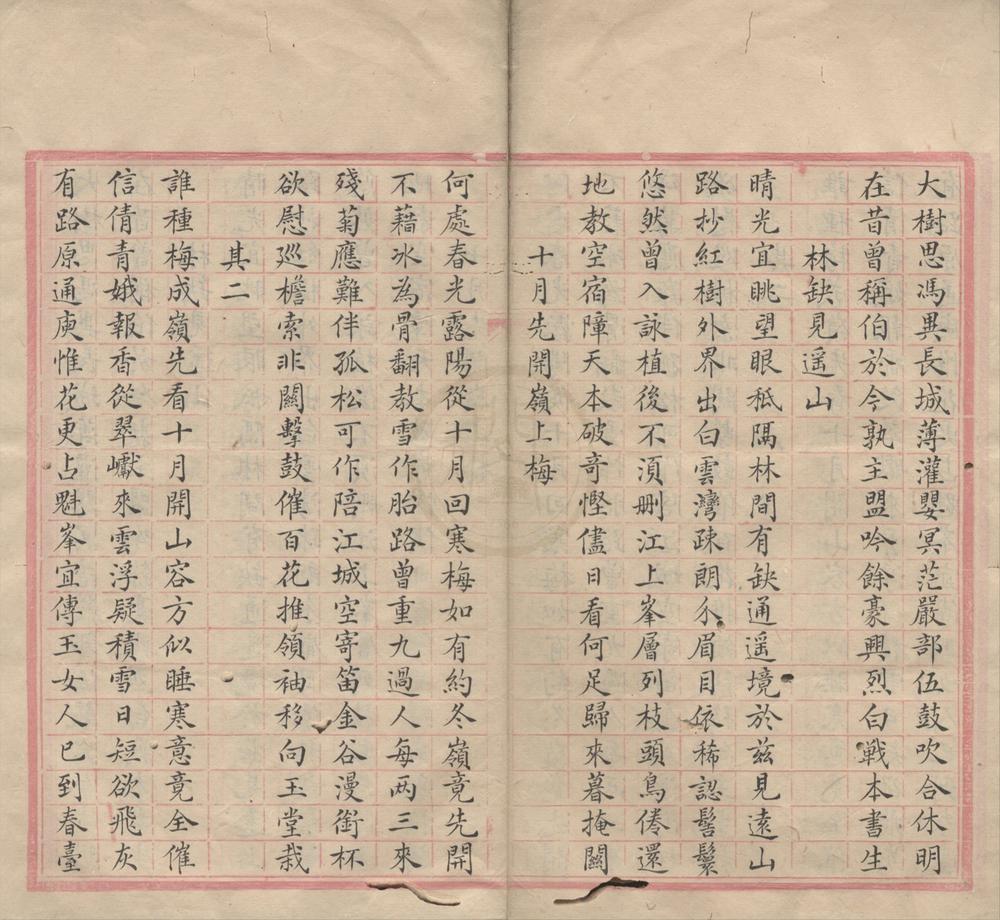 大樹思馮異長城薄灌嬰冥茫嚴部伍鼓吹合休明
在昔曾稱伯於今孰主盟吟餘豪興烈白戰本書生
林缺見遥山
晴光宜眺望眼秪隔林間有缺通遥境於兹見遠山
路抄紅樹外界出白雲灣疎朗尒眉目依稀認髻鬟
悠然曾入詠植後不湏刪江上峯層列枝頭鳥倦還
地教空宿障天本破奇慳儘日看何足歸來暮掩關
十月先開嶺上梅
何處春光露陽從十月回寒梅如有約冬嶺竟先開
不藉冰為骨翻教雪作胎路曾重九過人每两三來
殘菊應難伴孤松可作陪江城空寄笛金谷漫銜杯
欲慰巡檐索非關擊鼓催百花推領袖移向玉堂栽
其二
誰種梅成嶺先看十月開山容方似睡寒意竟全催
信倩青娥報香從翠巘來雲浮疑積雪日短欲飛灰
有路原通庾惟花更占魁峯宜傳玉女人已到春臺